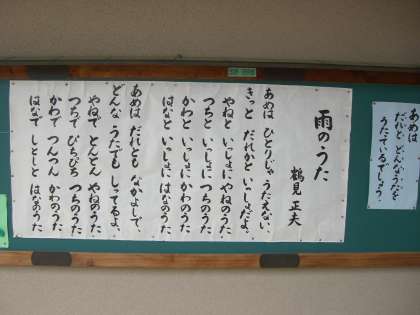 雨のうた
鶴見 正夫
あめは ひとりじゃ うたえない、
きっと だれかと いっしょだよ。
やねと いっしょに やねのうた
つちと いっしょに つちのうた
かわと いっしょに かわのうた
はなと いっしょに はなのうた。
あめは だれとも なかよしで、
どんな うたでも しってるよ。
やねで とんとん やねのうた
つちで ぴちぴち つちのうた
かわで つんつん かわのうた
はなで しとしと はなのうた。
あめは
だれと どんなうたを
うたっているでしょう。